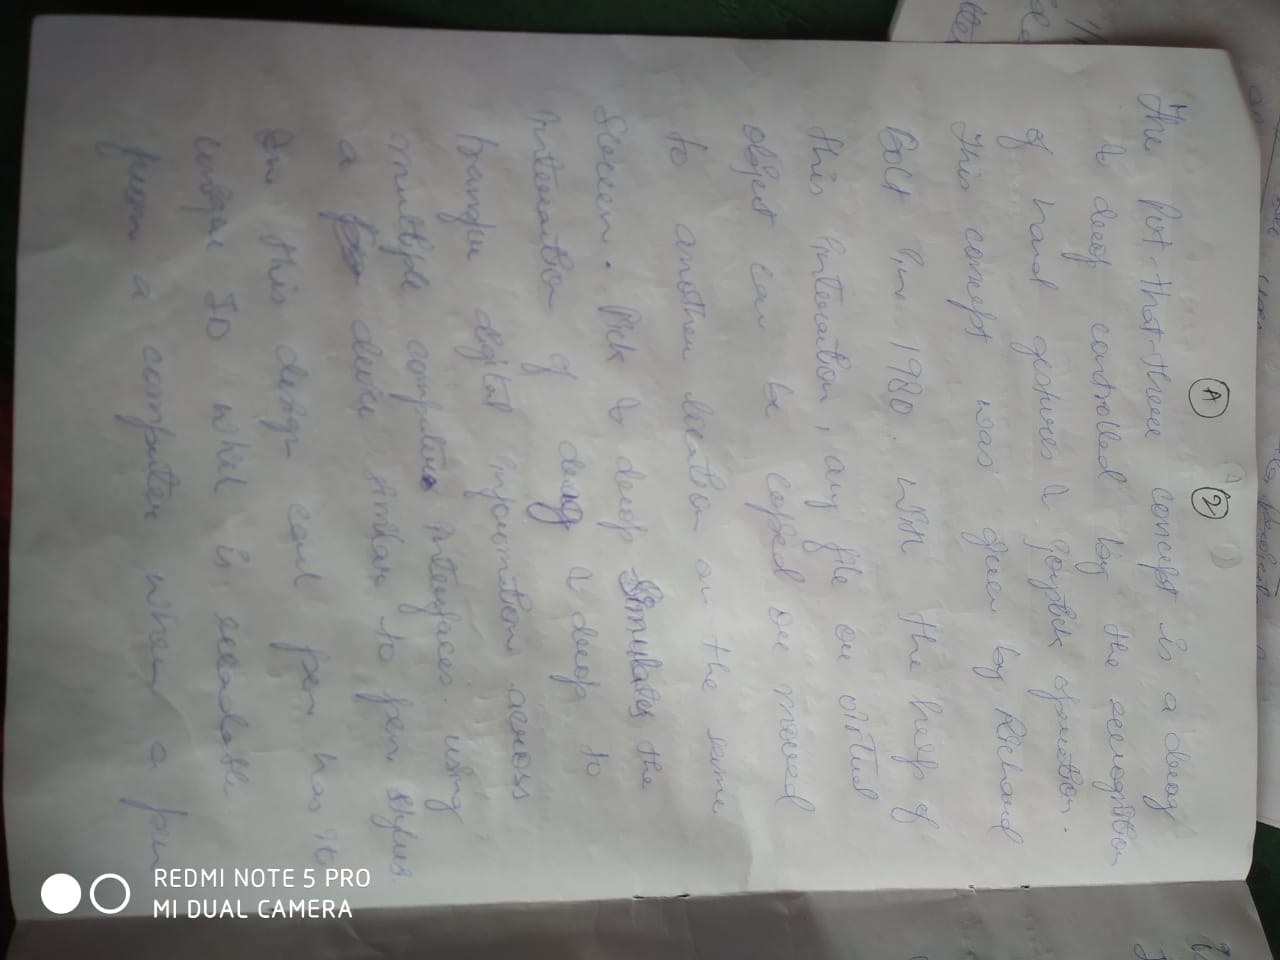 A 2
The Put-that-there concept is a drag
& drop controlled by the recognition
of hand gestures & joystick operation.
This concept was given by Richard
Bolt in 1980. With the help of
this interaction, any file or virtual
object can be copied or moved
to another location on the same
Screen. Pick & drop Simulates the
interaction of drag & drop to
transfer digital information across
multiple computers interfaces. using
a device similar to pen stylus.
In this design each pen has it
unique ID which is readable
from a computer when a pen
REDMI NOTE 5 PRO
MI DUAL CAMERA